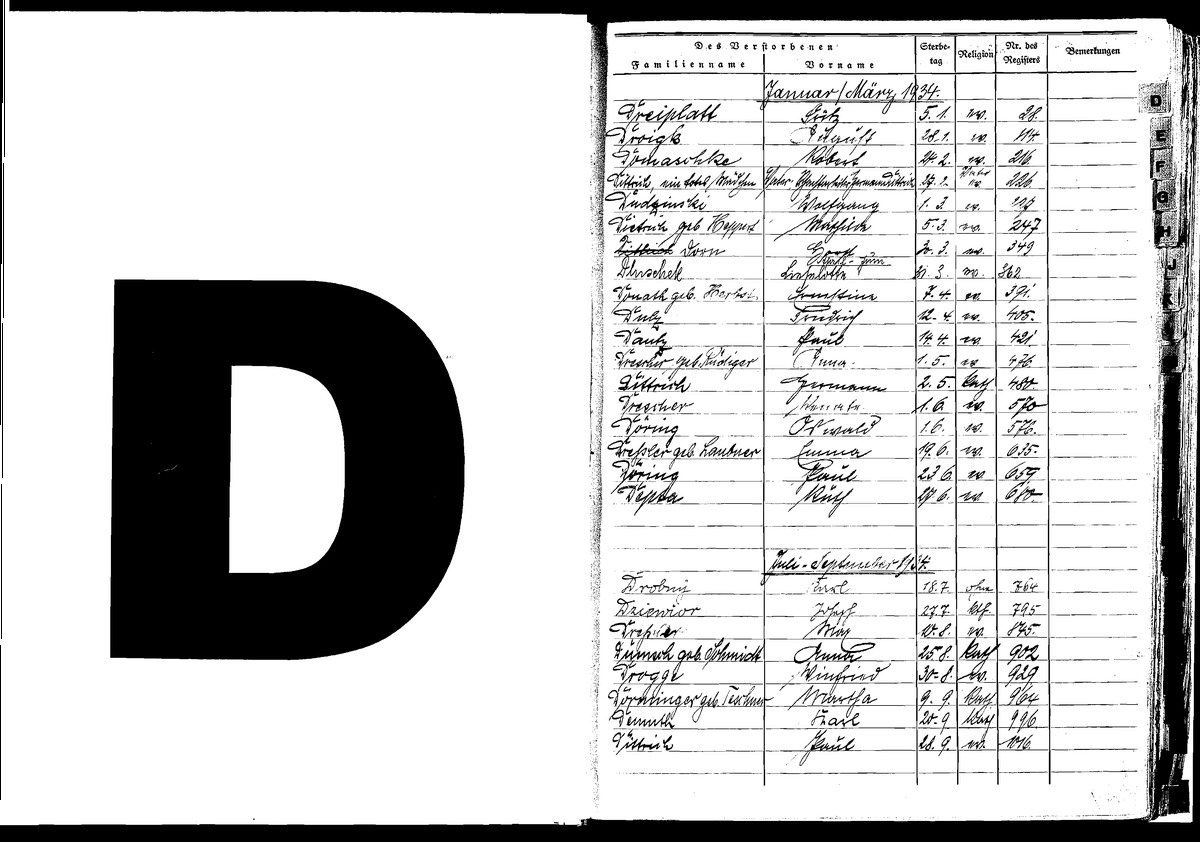 D
Des Verstorbenen
Familienname Vorname Sterbe-tag Religion Nr. des Registers Bemerkungen
Januar/März 1934.
Dreiplatt Fritz 5.1. ev. 28.
Droigk August 28.1. ev.
Domaschke Robert 24.2. ev. 216
Dittrich, ein totes Mädchen Vater 27.2. Vater ev 226.
Dudzinski Wolfgang 1.3. ev.
Dietrich geb. Heppert Mathilde 5.3. ev. 247
Dittrich Dorn Horst 30.3. ev. 349
Dluschek Liselotte 31.3. ev. 362.
Donath geb. Herbst Ernestine 7.4. ev. 391.
Friedrich 12.4. ev. 405.
Paul 14.4. ev 421
Drescher geb. Rüdiger Anna. 1.5. ev 476.
Dittrich Hermann 2.5. kath 480
Drescher Renate. 1.6. ev. 570
Döring Oswald 1.6. ev. 576.
Dreßler geb. Lautner Emma 19.6. ev. 635.
Döring Paul 23.6. ev 659
Depta Ruth 27.6. ev 680
Juli - September 1934.
Drobny Karl 18.7. ohne 764
Dziewior Josef 27.7. kth. 795
Max ev. 875.
geb. Schmidt Anna 25.8. kath 902
Drogge Winfried 30.8. ev. 929
Dörminger geb. Teschner Martha 9.9. kath. 964
Demuth Karl 20.9 kath 996.
Dittrich Paul 28.9. ev. 1016.
D
E
F
G
H
J
K